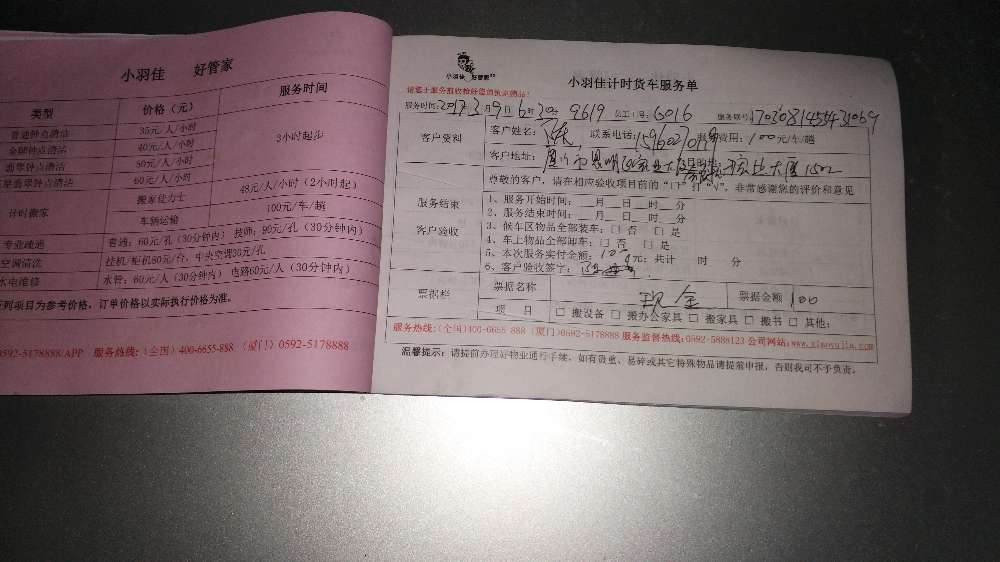 小羽佳 好管家
类型 价格（元） 服务时间
普通钟点清洁 35元/人/小时 3小时起步
金牌钟点清洁 40元/人/小时
翡翠钟点清洁 50元/人/小时
星翡翠钟点清洁 60元/人/小时
计时搬家 搬家佳力士 48元/人/小时（2小时起）
车辆运输 100元/车/趟
专业疏通 普通：60元/孔（30分钟内）技师：90元/孔（30分钟内）
空调清洗 挂机/柜机80元/台，中央空调30元/孔
水电维修 水管：60元/人（30分钟内）电路60元/人（30分钟内）
列项目为参考价格，订单价格以实际执行价格为准。
0592-5178888/APP 服务热线：（全国）400-6655-888（厦门）0592-5178888
小羽佳 好管家
小羽佳计时货车服务单
服务时间：2017 3月9日 9619 员工工号：6016 服务联号
客户资料 客户姓名： 联系电话： 费用：100元/车/趟
客户地址： 大厦1502
尊敬的客户，请在相应验收项目前的“□”打“√”，非常感谢您的评价和意见
服务结束 客户验收
1、服务开始时间：__月__日__时__分
2、服务结束时间：__月__日__时__分
3、候车区物品全部装车：□ 否 □ 是
4、车上物品全部卸车：□ 否 □ 是
5、本次服务实付金额：100元；共计 时 分
6、客户验收签字：
票据栏 票据名称 现金 票据金额 100
项 目 □ 搬设备 □ 搬办公家具 □ 搬家具 □ 搬书 □ 其他：
服务热线：（全国）400-6655 888（厦门）0592-5178888 服务监督热线：0592-5888123 公司网站：www.xiaoyujia.com
温馨提示：请提前办理好物业通行手续，如有贵重、易碎或其它特殊物品请提前申报，否则我司不予负责。